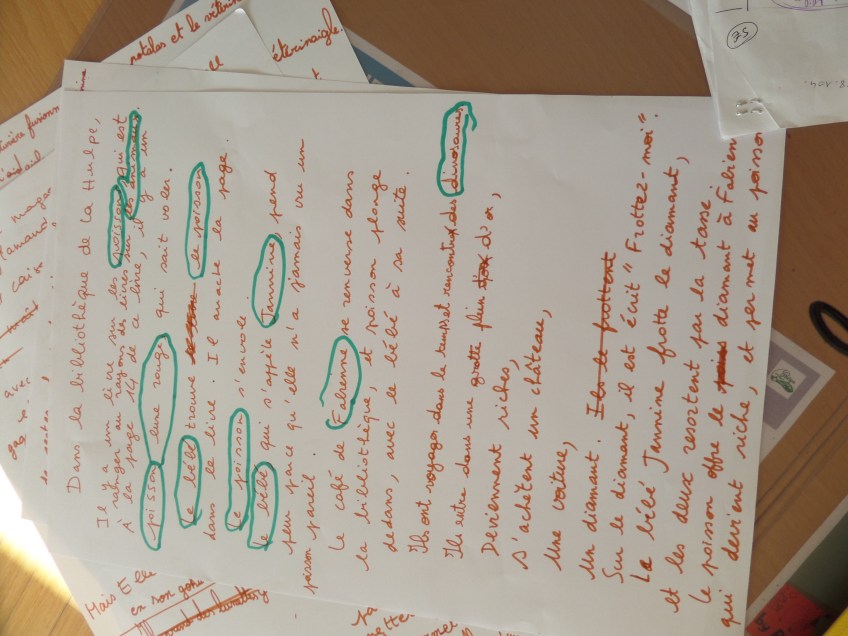 Dans la bibliothèque de la Hulpe,
Il y a un livre sur les poissons qui est
À ranger au rayons des livres sur les animaux.
À la page 14 de ce livre, il y a un
poisson lune rouge qui sait voler.
Le bébé trouve le poisson
dans le livre. Il arrache la page.
Le poisson s'envole.
Le bébé qui s'appèle Jasmine, prend
peur parce qu'elle n'a jamais vu un
poisson pareil.
Le café de Fabienne se renverse dans
la bibliothèque, et poisson plonge
dedans, avec le bébé à sa suite.
Ils ont voyager dans le temps et rencontrer des dinosaures.
Ils entre dans une grotte plein d'or,
Deviennent riches,
S'achètent un château,
Une voiture,
Un diamant. Ils le frottent
Sur le diamant, il est écrit "Frottez-moi".
La bébé Jasmine frotte le diamant,
et les deux resortent par la tasse.
Le poisson offre le diamant à Fabien
qui devient riche, et permet au poisson
Mais Elle
en son
prend des lunettes
notales et le vétérin
étérinaigle.
avec